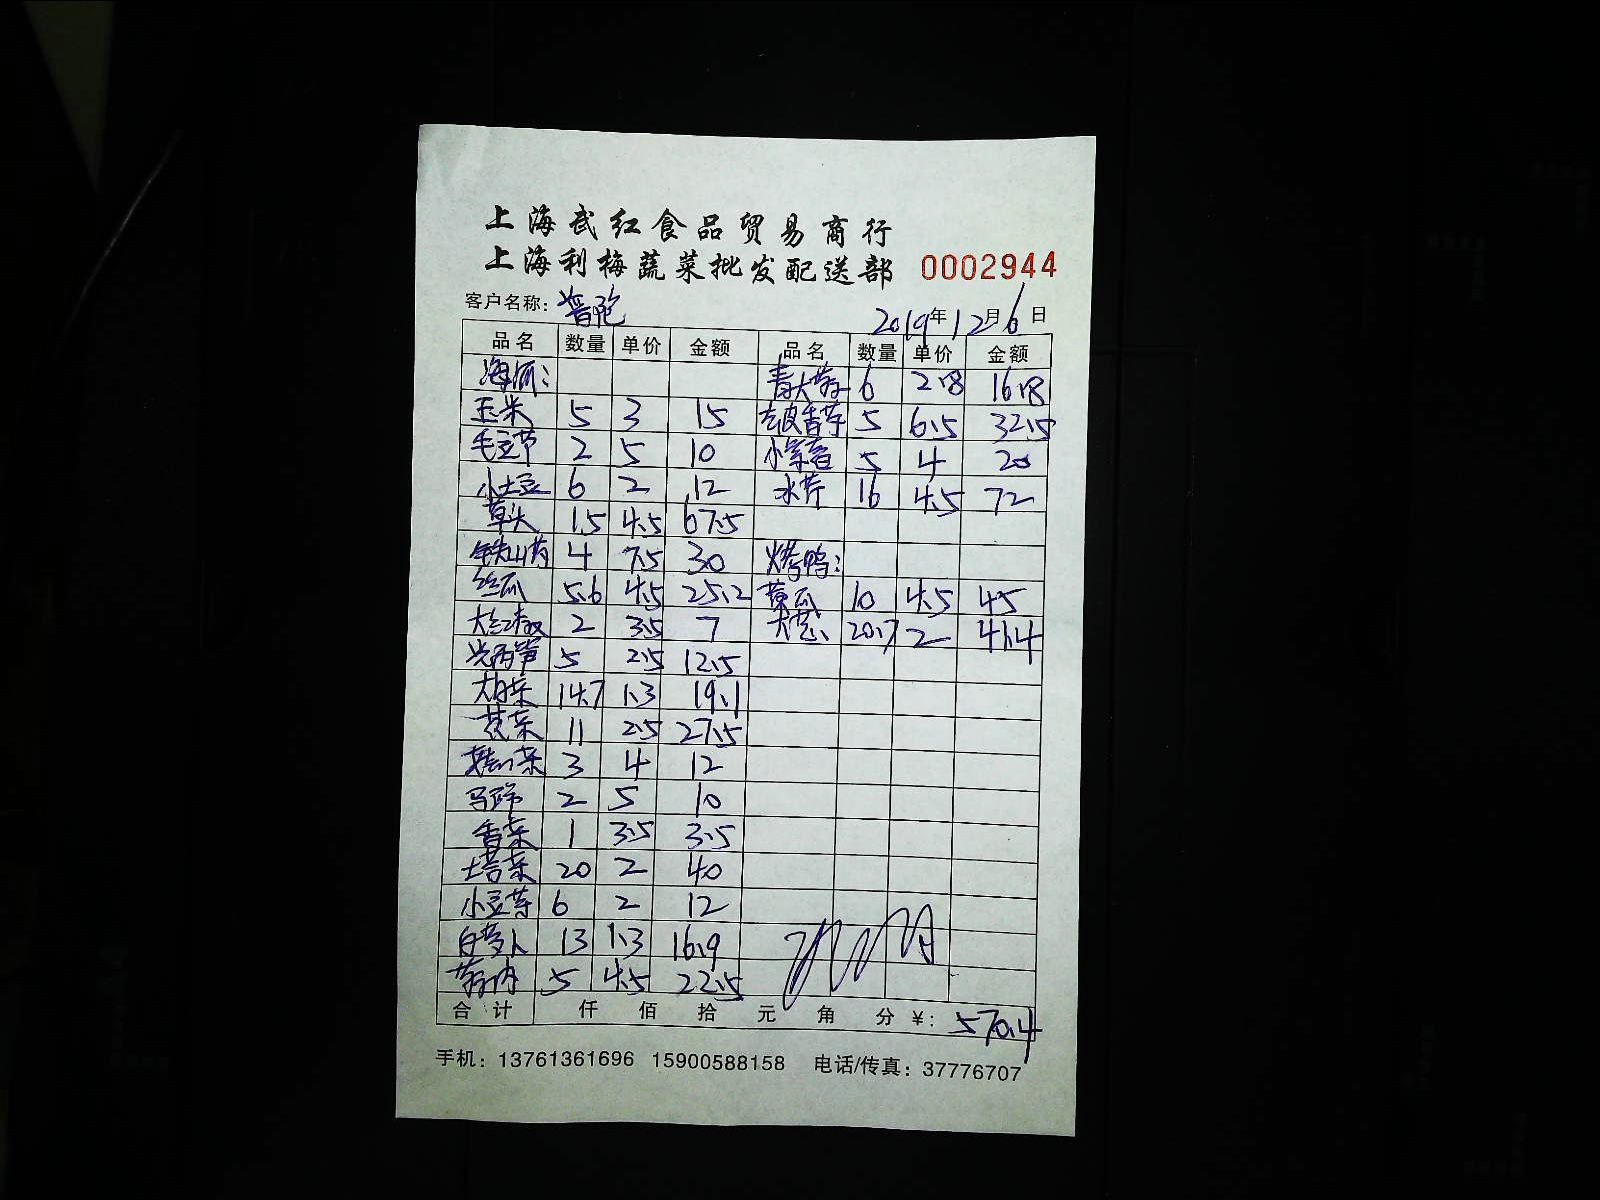 上海武红食品贸易商行
上海利梅蔬菜批发配送部 0002944
客户名称: 普陀 2019年12月6日
品名 数量 单价 金额 品名 数量 单价 金额
青大 6 2.8 16.8
玉米 5 3 15 去皮香芋 5 6.5 32.5
毛豆节 2 5 10 5 4 20
小土豆 6 2 12 水芹 16 4.5 72
草头 15 4.5 67.5
铁山药 4 7.5 30 烤鸭:
丝瓜 5.6 4.5 25.2 黄瓜 10 4.5 45
大红椒 2 3.5 7 大葱 20.7 2 41.4
5 2.5 12.5
大白菜 14.7 1.3 19.1
11 2.5 27.5
3 4 12
马蹄 2 5 10
香菜 1 3.5 3.5
塔菜 20 2 40
小豆芽 6 2 12
白萝卜 13 1.3 16.9
5 4.5 22.5
合计 仟 佰 拾 元 角 分 ¥: 570.4
手机: 13761361696 15900588158 电话/传真: 37776707